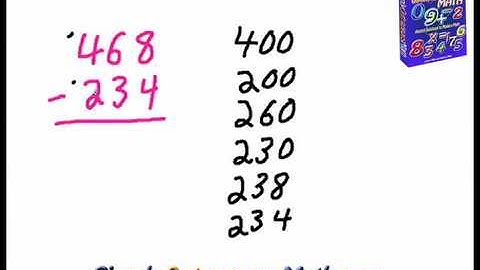 468
- 234
400
200
260
230
238
234
MATH